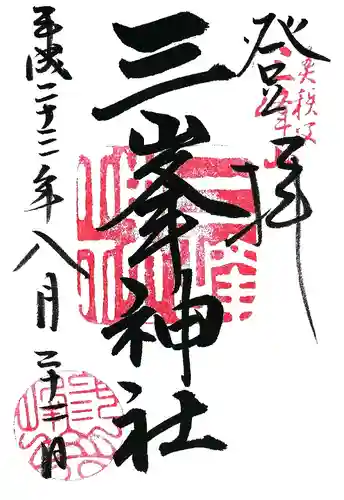 登拝
奥秩父
三峯山
三峯神社
平成二十二年八月二十二日